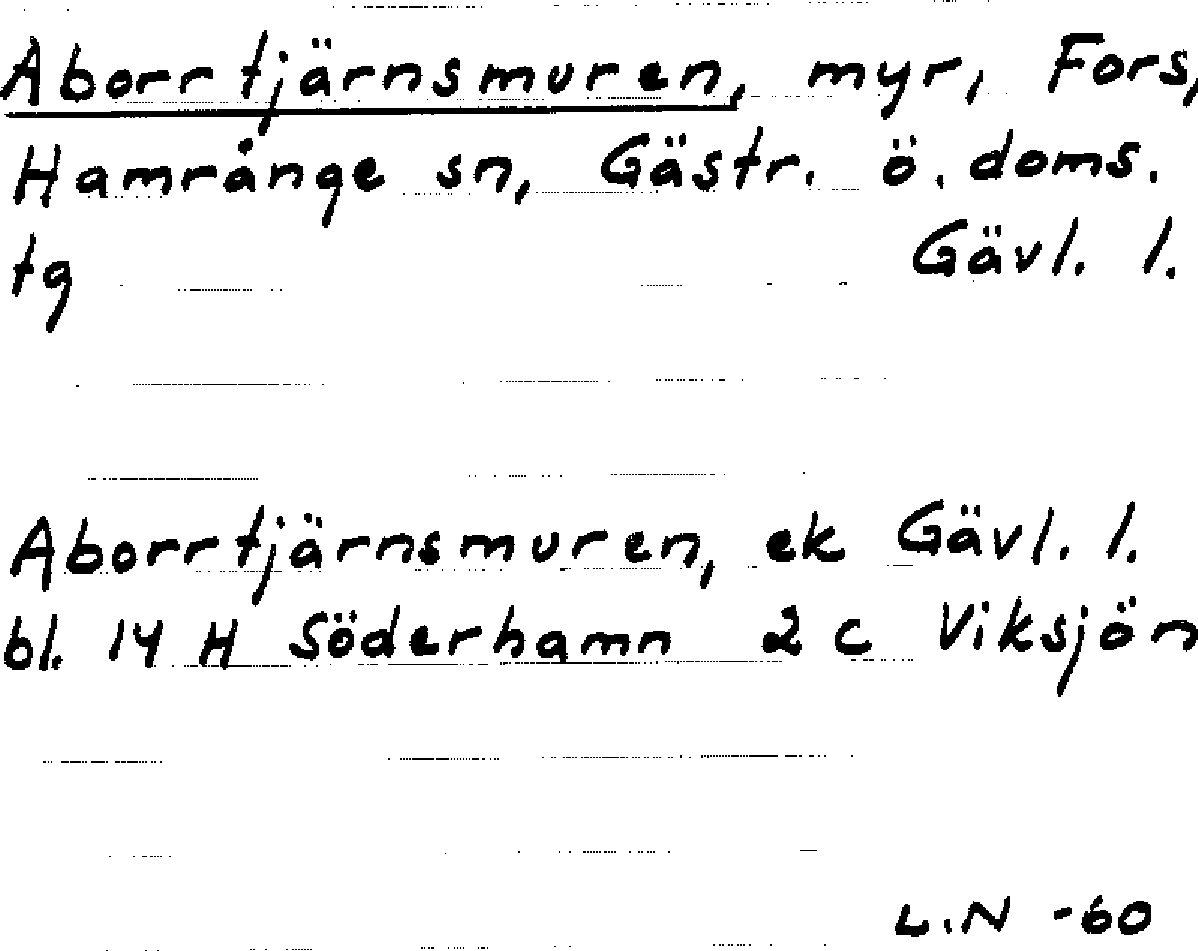 Aborrtjärnsmuren, myr, Fors,
Hamrånge sn, Gästr. ö. doms.
tg Gävl. l.
Aborrtjärnsmuren, ek Gävl. l.
bl. 14 H Söderhamn 2 c Viksjön
L.N -60